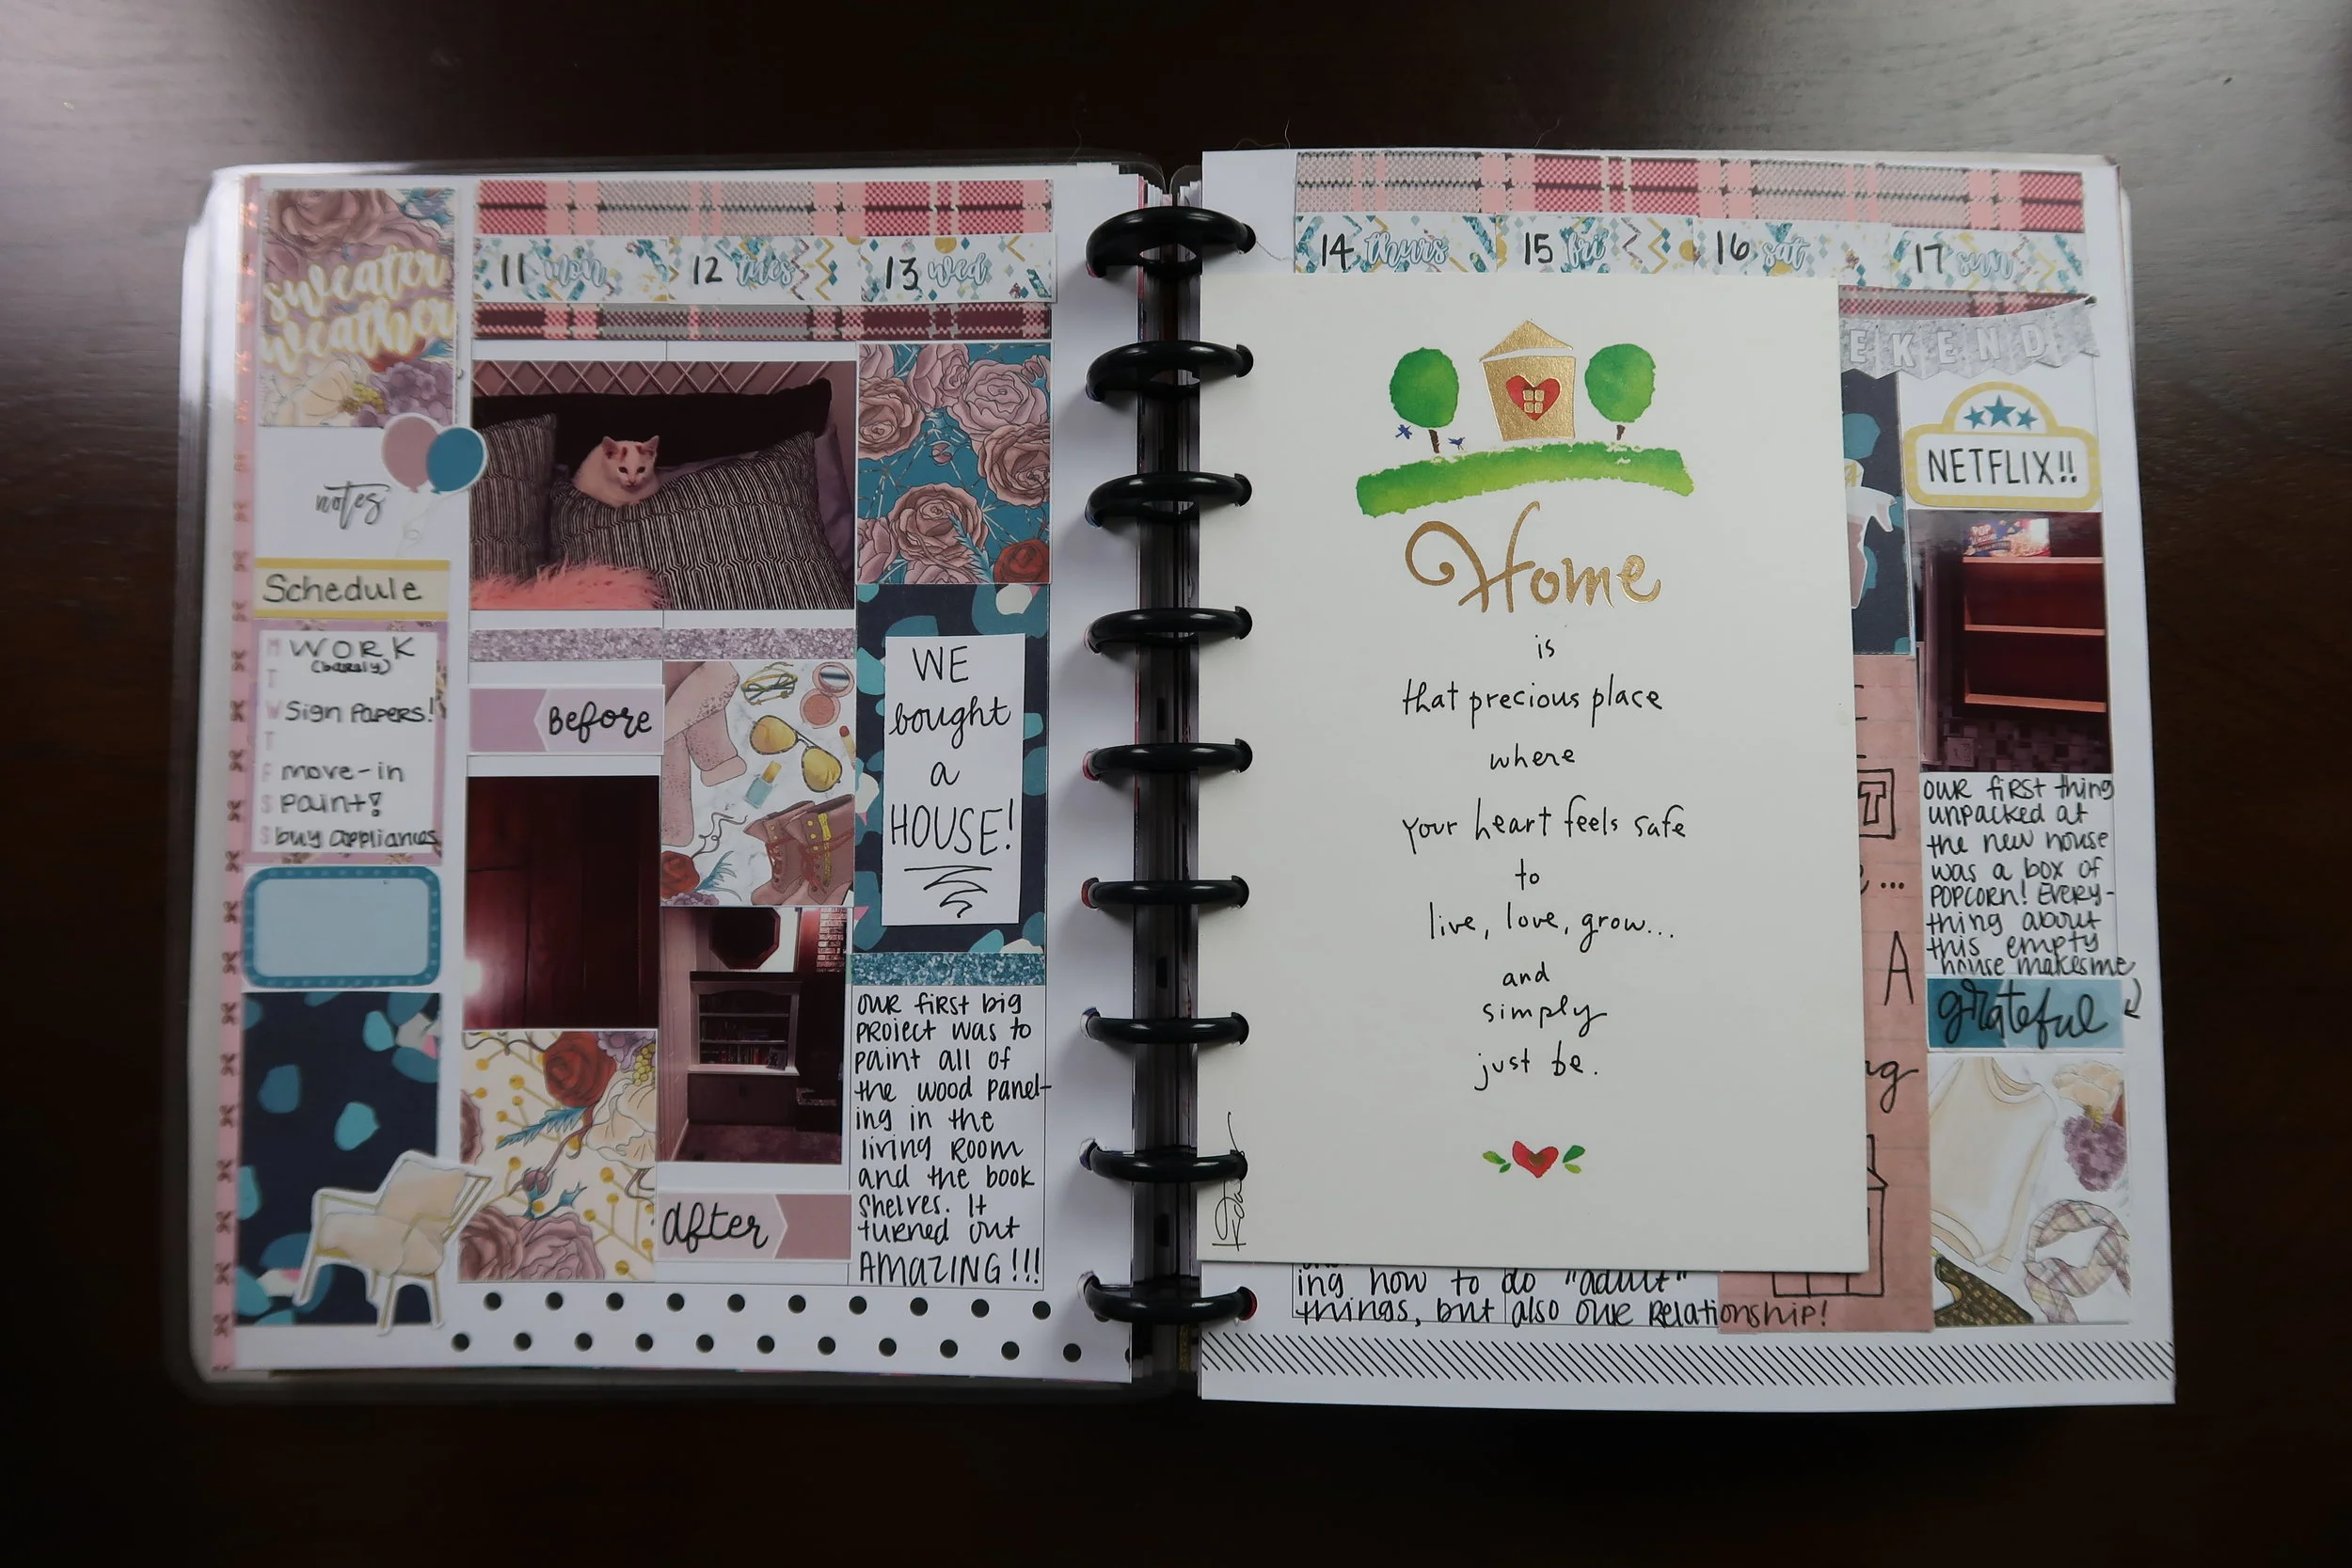 sweater
weather
notes
Schedule
M WORK
(barely)
T
W Sign Papers!
T
F move-in
S paint!
S buy appliances
11 mon
12 tues
13 wed
Before
After
WE
bought
a
HOUSE!
OUR first big
project was to
paint all of
the wood panel-
ing in the
living Room
and the book
shelves. It
turned out
AMAZING!!!
14 thurs
15 fri
16 sat
17 sun
EKEND
Home
is
that precious place
where
your heart feels safe
to
live, love, grow...
and
simply
just be.
ing how to do "adult"
things, but also our relationship!
T
...
A
ng
NETFLIX!!
POP
OUR first thing
unpacked at
the new house
was a box of
POPCORN! EVERY-
thing about
this empty
house makes me
grateful